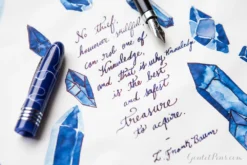 No thief,
however skilful,
can rob one of
Knowledge,
and that is why Knowledge
is the best
and safest
Treasure
to acquire.
L. Frank Baum
GentlePens.com